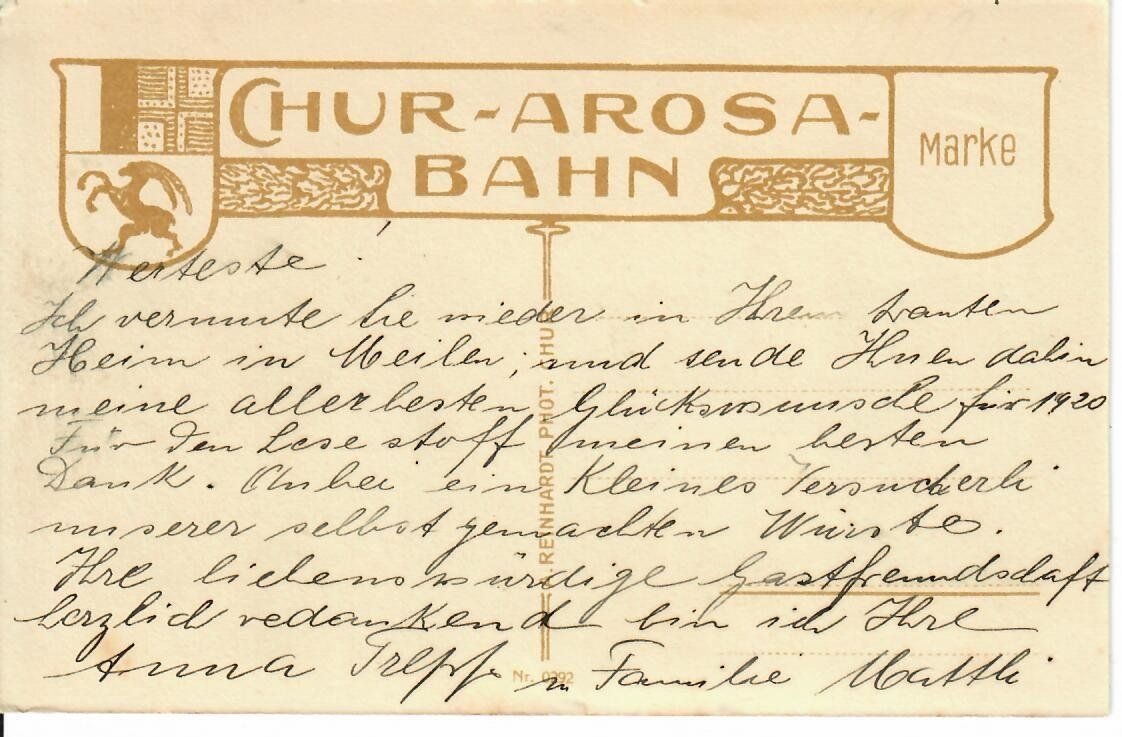 CHUR-AROSA-
BAHN
Marke
Werteste !
Ich vermute Sie wieder in Ihrem trauten
Heim in Meilen, und sende Ihnen dahin
meine allerbesten Glückswünsche für 1920
Für den Lesestoff meinen besten
Dank. Anbei ein Kleines Versucherli
unserer selbstgemachten Würste.
Ihre liebenswürdige Gastfreundschaft
herzlich verdankend bin ich Ihre
Anna Trepp u Familie Mattli
REINHARDT, PHOT. CHUR
Nr. 0292